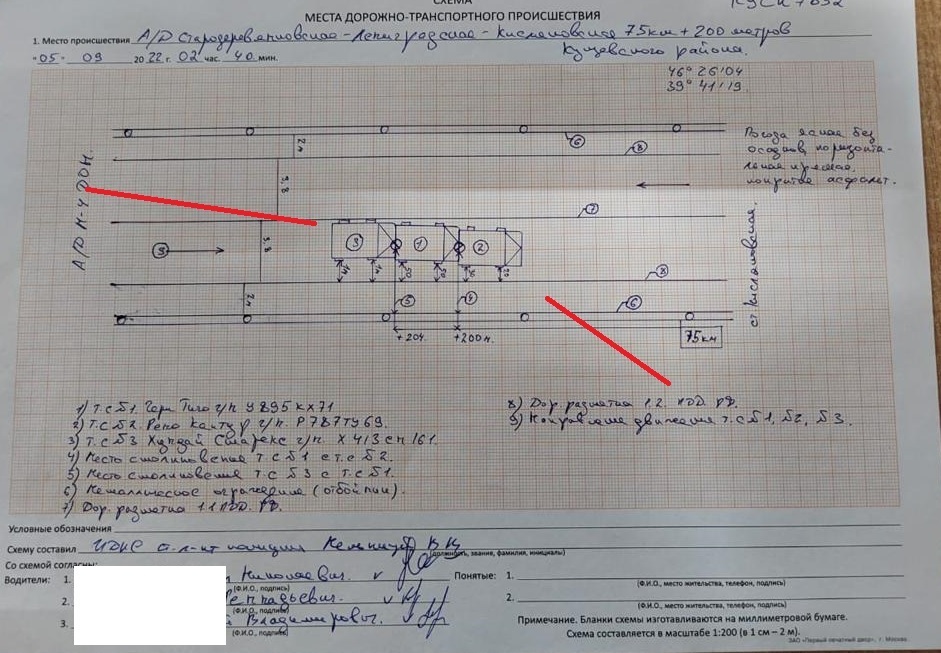 СХЕМА
МЕСТА ДОРОЖНО-ТРАНСПОРТНОГО ПРОИСШЕСТВИЯ
1. Место происшествия А/Д Стародеревянковская-Ленинградская-Кисляковская 75км+200метров
"05" 09 2022 г. 02 час. 40 мин. Кущевского района.
46° 26'04
39° 41'19
Погода ясная без
осадков, горизонта-
льная прямая,
покрытие асфальт.
А/Д М-4 ДОН.
ст. Кисляковская.
2м
6
8
3,8
7
9
3
1
2
3,8
8
2м
5
4
6
+204
+200м.
75км
1) Т.С №1. Чери Тиго г/н У895КХ71
2) Т.С №2. Рено Каптур г/н. Р787ТУ69.
3) Т.С №3 Хундай Старекс г/н. Х413СН161.
4) Место столкновения Т.С №1 с Т.С №2.
5) Место столкновения Т.С №3 с Т.С №1.
6) Металлическое ограждение (отбойник).
7) Дор. разметка 1.1 ПДД. РФ.
8) Дор. разметка 1.2. ПДД. РФ.
9) Направление движения Т.С №1, №2, №3.
Условные обозначения
Схему составил ИДПС ст. л-нт полиции
(должность, звание, фамилия, инициалы)
Со схемой согласны:
Водители: 1. Николаевич. v
(Ф.И.О., подпись)
2. Геннадьевич. v
(Ф.И.О., подпись)
3. Владимирович. v
(Ф.И.О., подпись)
Понятые: 1.
(Ф.И.О., место жительства, телефон, подпись)
2.
(Ф.И.О., место жительства, телефон, подпись)
Примечание. Бланки схемы изготавливаются на миллиметровой бумаге.
Схема составляется в масштабе 1:200 (в 1 см – 2 м).
ЗАО «Первый печатный двор», г. Москва.